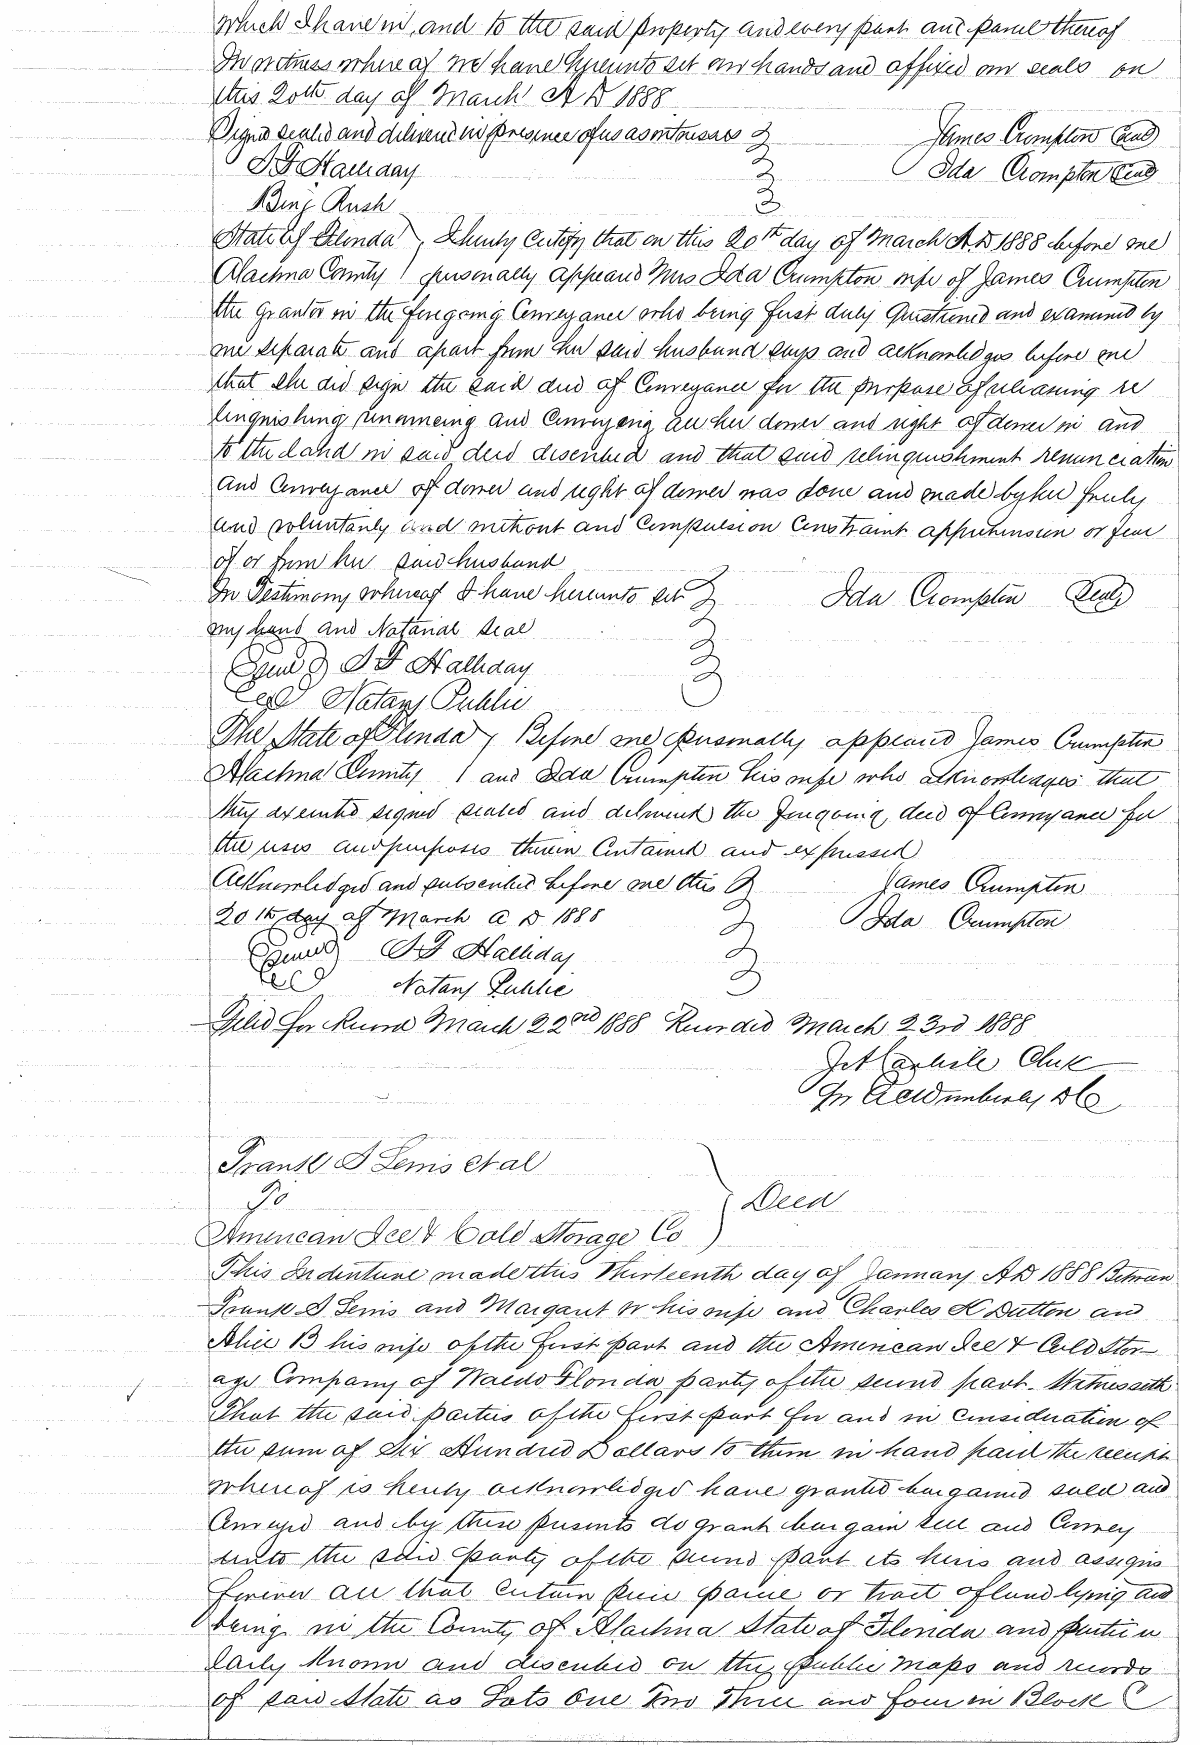 which I have in, and to the said property and every part and parcel thereof
In witness whereof we have hereunto set our hands and affixed our seals on
this 20th day of March A D 1888
Signed sealed and delivered in presence of us as witnesses James Crompton Seal
S F Halliday Ida Crompton Seal
Benj Rush
State of Florida } I hereby certify that on this 20th day of March A.D 1888 before me
Alachua County } personally appeared Mrs Ida Crumpton wife of James Crumpton
the Grantor in the foregoing Conveyance who being first duly questioned and examined by
me separate and apart from her said husband says and acknowledges before me
that she did sign the said deed of Conveyance for the purpose of releasing re
linquishing renouncing and Conveying all her dower and right of dower in and
to the land in said deed described and that said relinquishment renunciation
and Conveyance of dower and right of dower was done and made by her freely
and voluntarily and without and Compulsion Constraint apprehension or fear
of or from her said husband
In Testimony whereof I have hereunto set Ida Crompton Seal
my hand and Notarial seal
S F Halliday
Notary Public
The State of Florida } Before me personally appeared James Crumpton
Alachua County } and Ida Crumpton his wife who acknowledges that
they executed signed sealed and delivered the foregoing deed of Conveyance for
the uses and purposes therein Contained and expressed
Acknowledged and subscribed before me this James Crumpton
20th day of March A D 1888 Ida Crumpton
S F Halliday
Notary Public
Filed for Record March 22nd 1888 Recorded March 23rd 1888
Carlisle Clerk
Wimberly D C
Frank S Lewis et al
To } Deed
American Ice & Cold Storage Co
This Indenture made this Thirteenth day of January A D 1888 Between
Frank S Lewis and Margaret W his wife and Charles K Dutton and
Alice B his wife of the first part and the American Ice & Cold Stor-
age Company of Waldo Florida party of the second part. Witnesseth
That the said parties of the first part for and in Consideration of
the sum of Six Hundred Dollars to them in hand paid the receipt
whereof is hereby acknowledged have granted bargained sold and
Conveyed and by these presents do grant bargain sell and Convey
unto the said party of the second part its heirs and assigns
forever all that Certain piece parcel or tract of land lying and
being in the County of Alachua State of Florida and particu
larly known and described on the public maps and records
of said State as Lots One Two Three and four in Block C